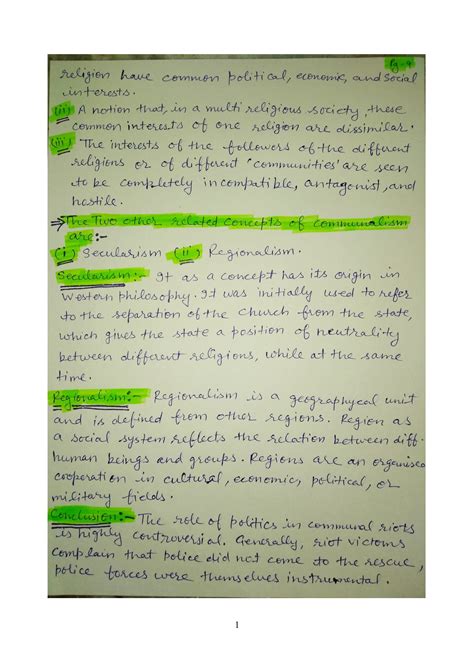 Pg-9
religion have common political, economic, and social
interests.
(ii) A notion that, in a multi religious society, these
common interests of one religion are dissimilar.
(iii) The interests of the followers of the different
religions or of different 'communities' are seen
to be completely incompatible, antagonist, and
hostile.
→ The Two other related concepts of communalism
are:-
(i) Secularism (ii) Regionalism.
Secularism:- It as a concept has its origin in
Western philosophy. It was initially used to refer
to the separation of the Church from the state,
which gives the state a position of neutrality
between different religions, while at the same
time.
Regionalism:- Regionalism is a geographycal unit
and is defined from other regions. Region as
a social system reflects the relation between diff-
human beings and groups. Regions are an organised
cooperation in cultural, economic, political, or
military fields.
Conclusion:- The role of politics in communal riots
is highly controversial. Generally, riot victims
complain that police did not come to the rescue,
police forces were themselves instrumental.
1